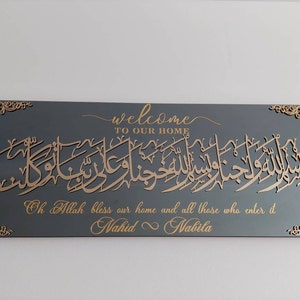 welcome
TO OUR HOME
بسم الله ولجنا وبسم الله خرجنا وعلى ربنا توكلنا
Oh Allah bless our home and all those who enter it
Nahid ~ Nabila